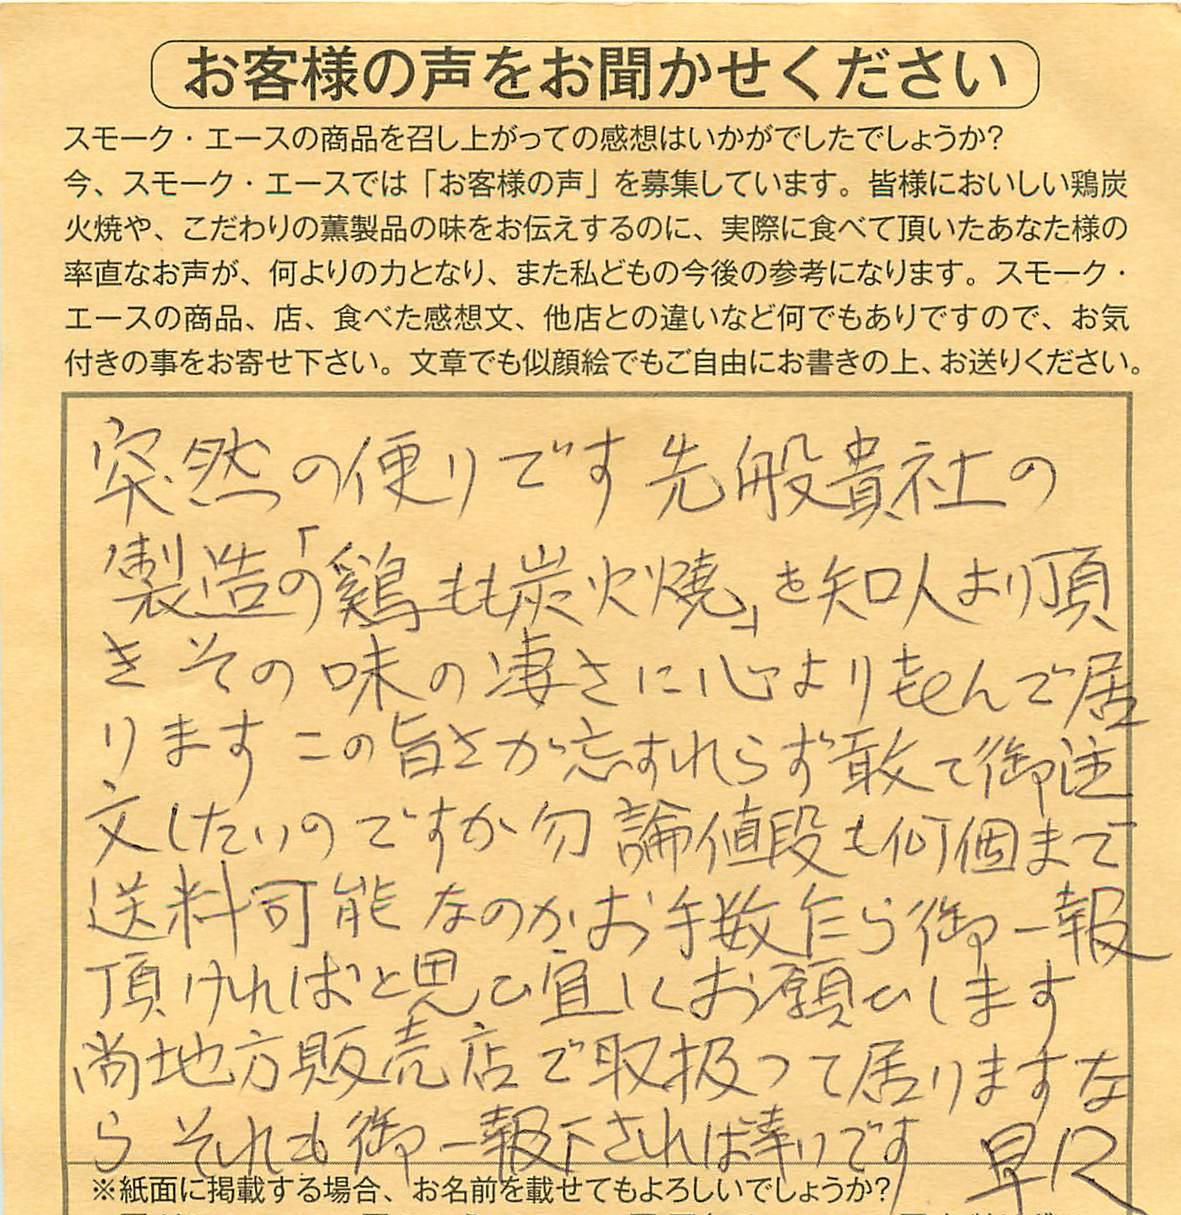 お客様の声をお聞かせください
スモーク・エースの商品を召し上がっての感想はいかがでしたでしょうか?
今、スモーク・エースでは「お客様の声」を募集しています。皆様においしい鶏炭
火焼や、こだわりの薫製品の味をお伝えするのに、実際に食べて頂いたあなた様の
率直なお声が、何よりの力となり、また私どもの今後の参考になります。スモーク・
エースの商品、店、食べた感想文、他店との違いなど何でもありですので、お気
付きの事をお寄せ下さい。文章でも似顔絵でもご自由にお書きの上、お送りください。
突然の便りです先般貴社の
製造の「鶏もも炭火焼」を知人より頂
きその味の凄さに心より喜んで居
りますこの旨さが忘すれらず敢て御注
文したいのですが勿論値段も何個まで
送料可能なのかお手数乍ら御一報
頂ければと思ひ宜しくお願ひします
尚地方販売店で取扱って居りますな
らそれも御一報下されば幸いです 早々
※紙面に掲載する場合、お名前を載せてもよろしいでしょうか?